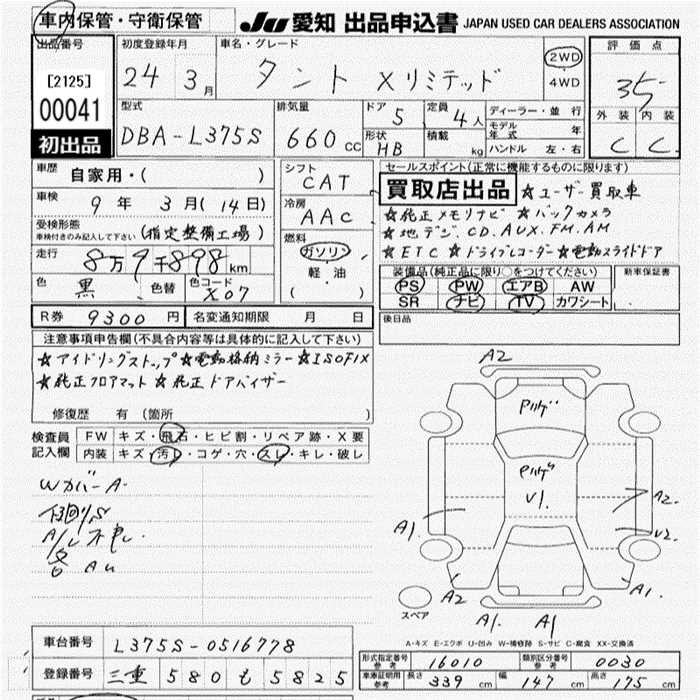 車内保管・守衛保管
JU 愛知 出品申込書 JAPAN USED CAR DEALERS ASSOCIATION
出品番号 初度登録年月 車名・グレード 評価点
[2125] 24 3月 タント Xリミテッド 2WD 4WD 35
00041
型式 排気量 ドア 定員 ディーラー・並行 外装 内装
初出品 DBA-L375S 660cc 5 4人 モデル年式 年 C C
形状 HB 積載 kg ハンドル 左・右
車歴 自家用・( )
シフト CAT
セールスポイント(正常に機能するものに限ります)
買取店出品 ☆ユーザー買取車
車検 9年 3月(14日)
冷房 AAC
☆純正メモリナビ ☆バックカメラ
受検形態 車検付きのみ記入して下さい (指定整備工場)
☆地デジ、CD.AUX.FM.AM
走行 8万9千898km
燃料 ガソリン 軽油 ( )
☆ETC ☆ドライブレコーダー ☆電動スライドドア
色 黒 色替 色コード X07
装備品(純正品に限り○をつけてください) 新車保証書
PS PW エアB AW
SR ナビ TV カワシート
R券 9300円 名変通知期限 月 日
後日品
注意事項申告欄(不具合内容等は具体的に記入して下さい)
☆アイドリングストップ ☆電動格納ミラー ☆ISOFIX
☆純正フロアマット ☆純正ドアバイザー
修復歴 有 (箇所
検査員記入欄 FW キズ・飛石・ヒビ割・リペア跡・X要
内装 キズ・汚レ・コゲ・穴・スレ・キレ・破レ
WカバーA
A2
Pルゲ
Pルゲ
V1.
A1
A2
V2.
A2
A1.
A1.
A1
スペア
A-キズ E-エクボ U-凹み W-補修跡 S-サビ C-腐食 XX-交換済
車台番号 L375S-0516778
登録番号 三重 580 も 5825
形式指定番号 参考 16010 類別区分番号 参考 0030
車庫証明用 参考 長さ 339cm 幅 147cm 高さ 175cm